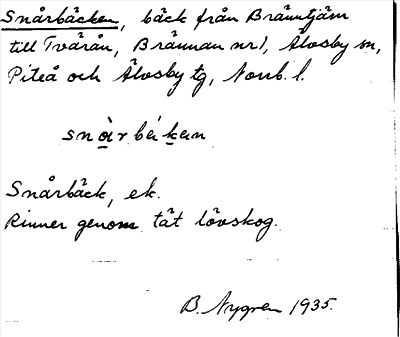 Snårbäcken, bäck från Bränntjärn
till Tvärån, Brännan nr 1, Älvsby sn,
Piteå och Älvsby tg, Norrb. l.
snå̀rbékan
Snårbäck, ek.
Rinner genom tät lövskog.
B. Nygren 1935.